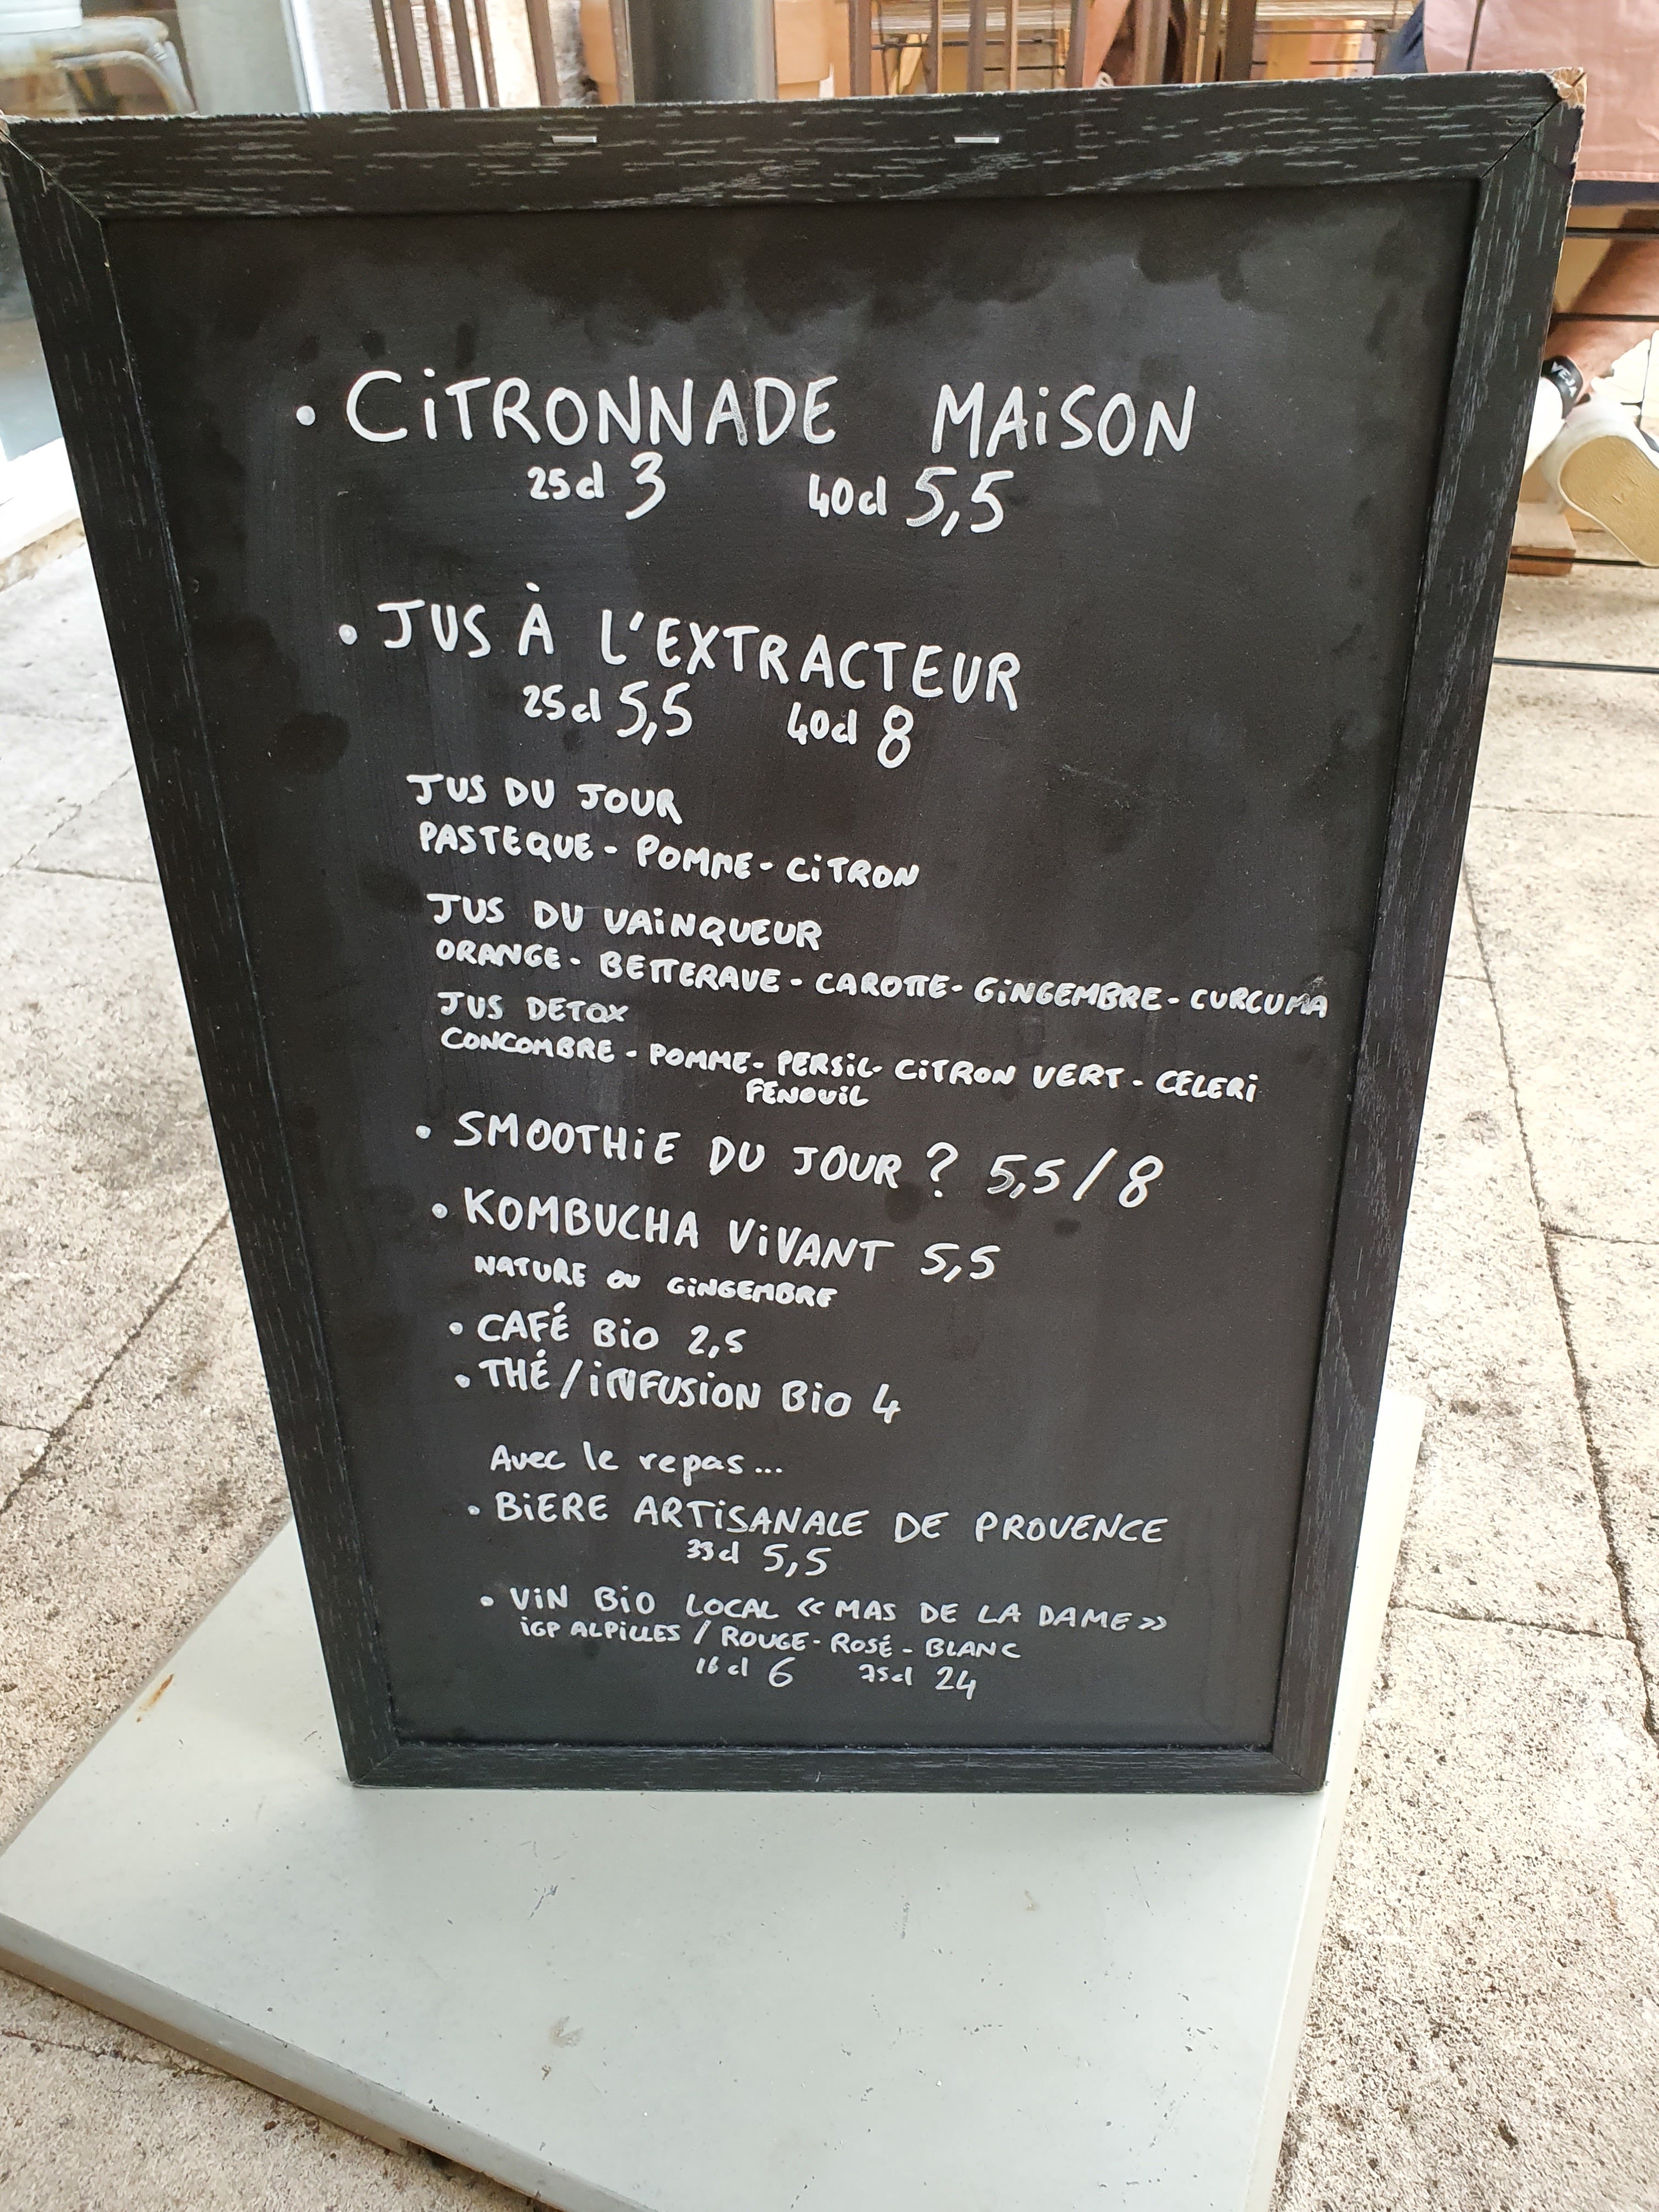 • CiTRONNADE MAiSON
25cl 3 40cl 5,5
• JUS À L'EXTRACTEUR
25cl 5,5 40cl 8
JUS DU JOUR
PASTEQUE - POMME - CiTRON
JUS DU VAiNQUEUR
ORANGE - BETTERAVE - CAROTTE - GiNGEMBRE - CURCUMA
JUS DETOX
CONCOMBRE - POMME - PERSiL - CiTRON VERT - CELERi
FENOUiL
• SMOOTHiE DU JOUR ? 5,5 / 8
• KOMBUCHA ViVANT 5,5
NATURE OU GiNGEMBRE
• CAFÉ Bio 2,5
• THÉ / iNFUSiON Bio 4
Avec le repas...
• BiERE ARTiSANALE DE PROVENCE
33cl 5,5
• ViN BiO LOCAL « MAS DE LA DAME »
iGP ALPiLLES / ROUGE - ROSÉ - BLANC
16cl 6 75cl 24
VEJA